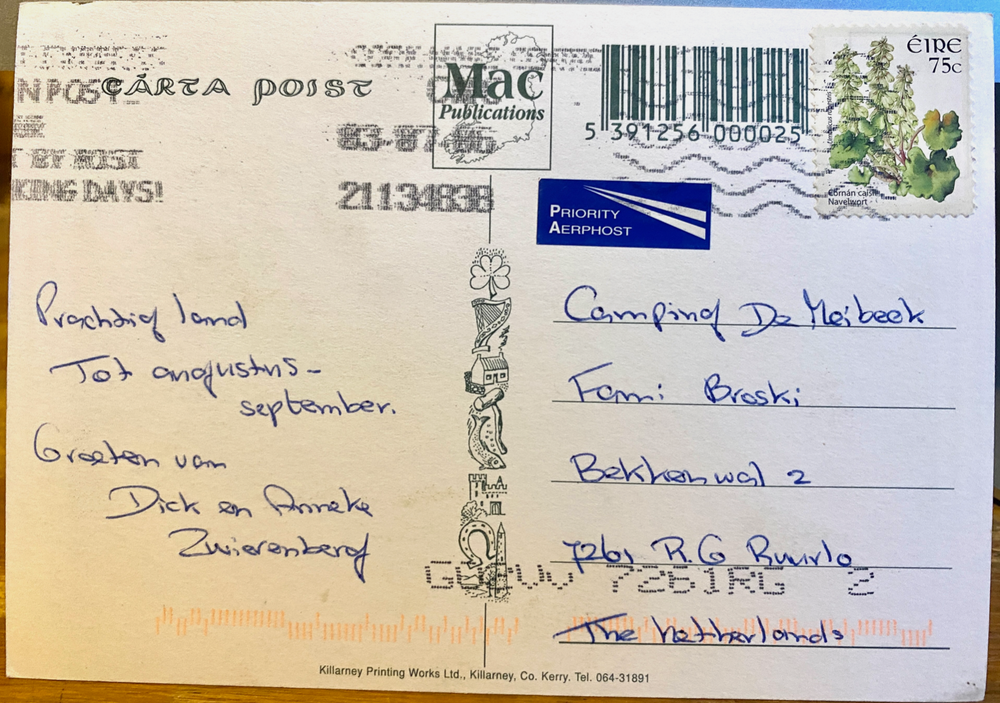 CÁRTA POIST
Mac
Publications
5 391256 000025
ÉIRE
75c
Cornán caisil
Navelwort
N POST
T BY MOST
KING DAYS!
21134838
PRIORITY
AERPHOST
Prachtig land
Tot augustus-
september.
Groeten van
Dick en Anneke
Zwierenberg
Camping De Meibeek
Fami Broski
Bekkenwal 2
7261 R.G Ruurlo
The Netherlands
7261RG 2
Killarney Printing Works Ltd., Killarney, Co. Kerry. Tel. 064-31891